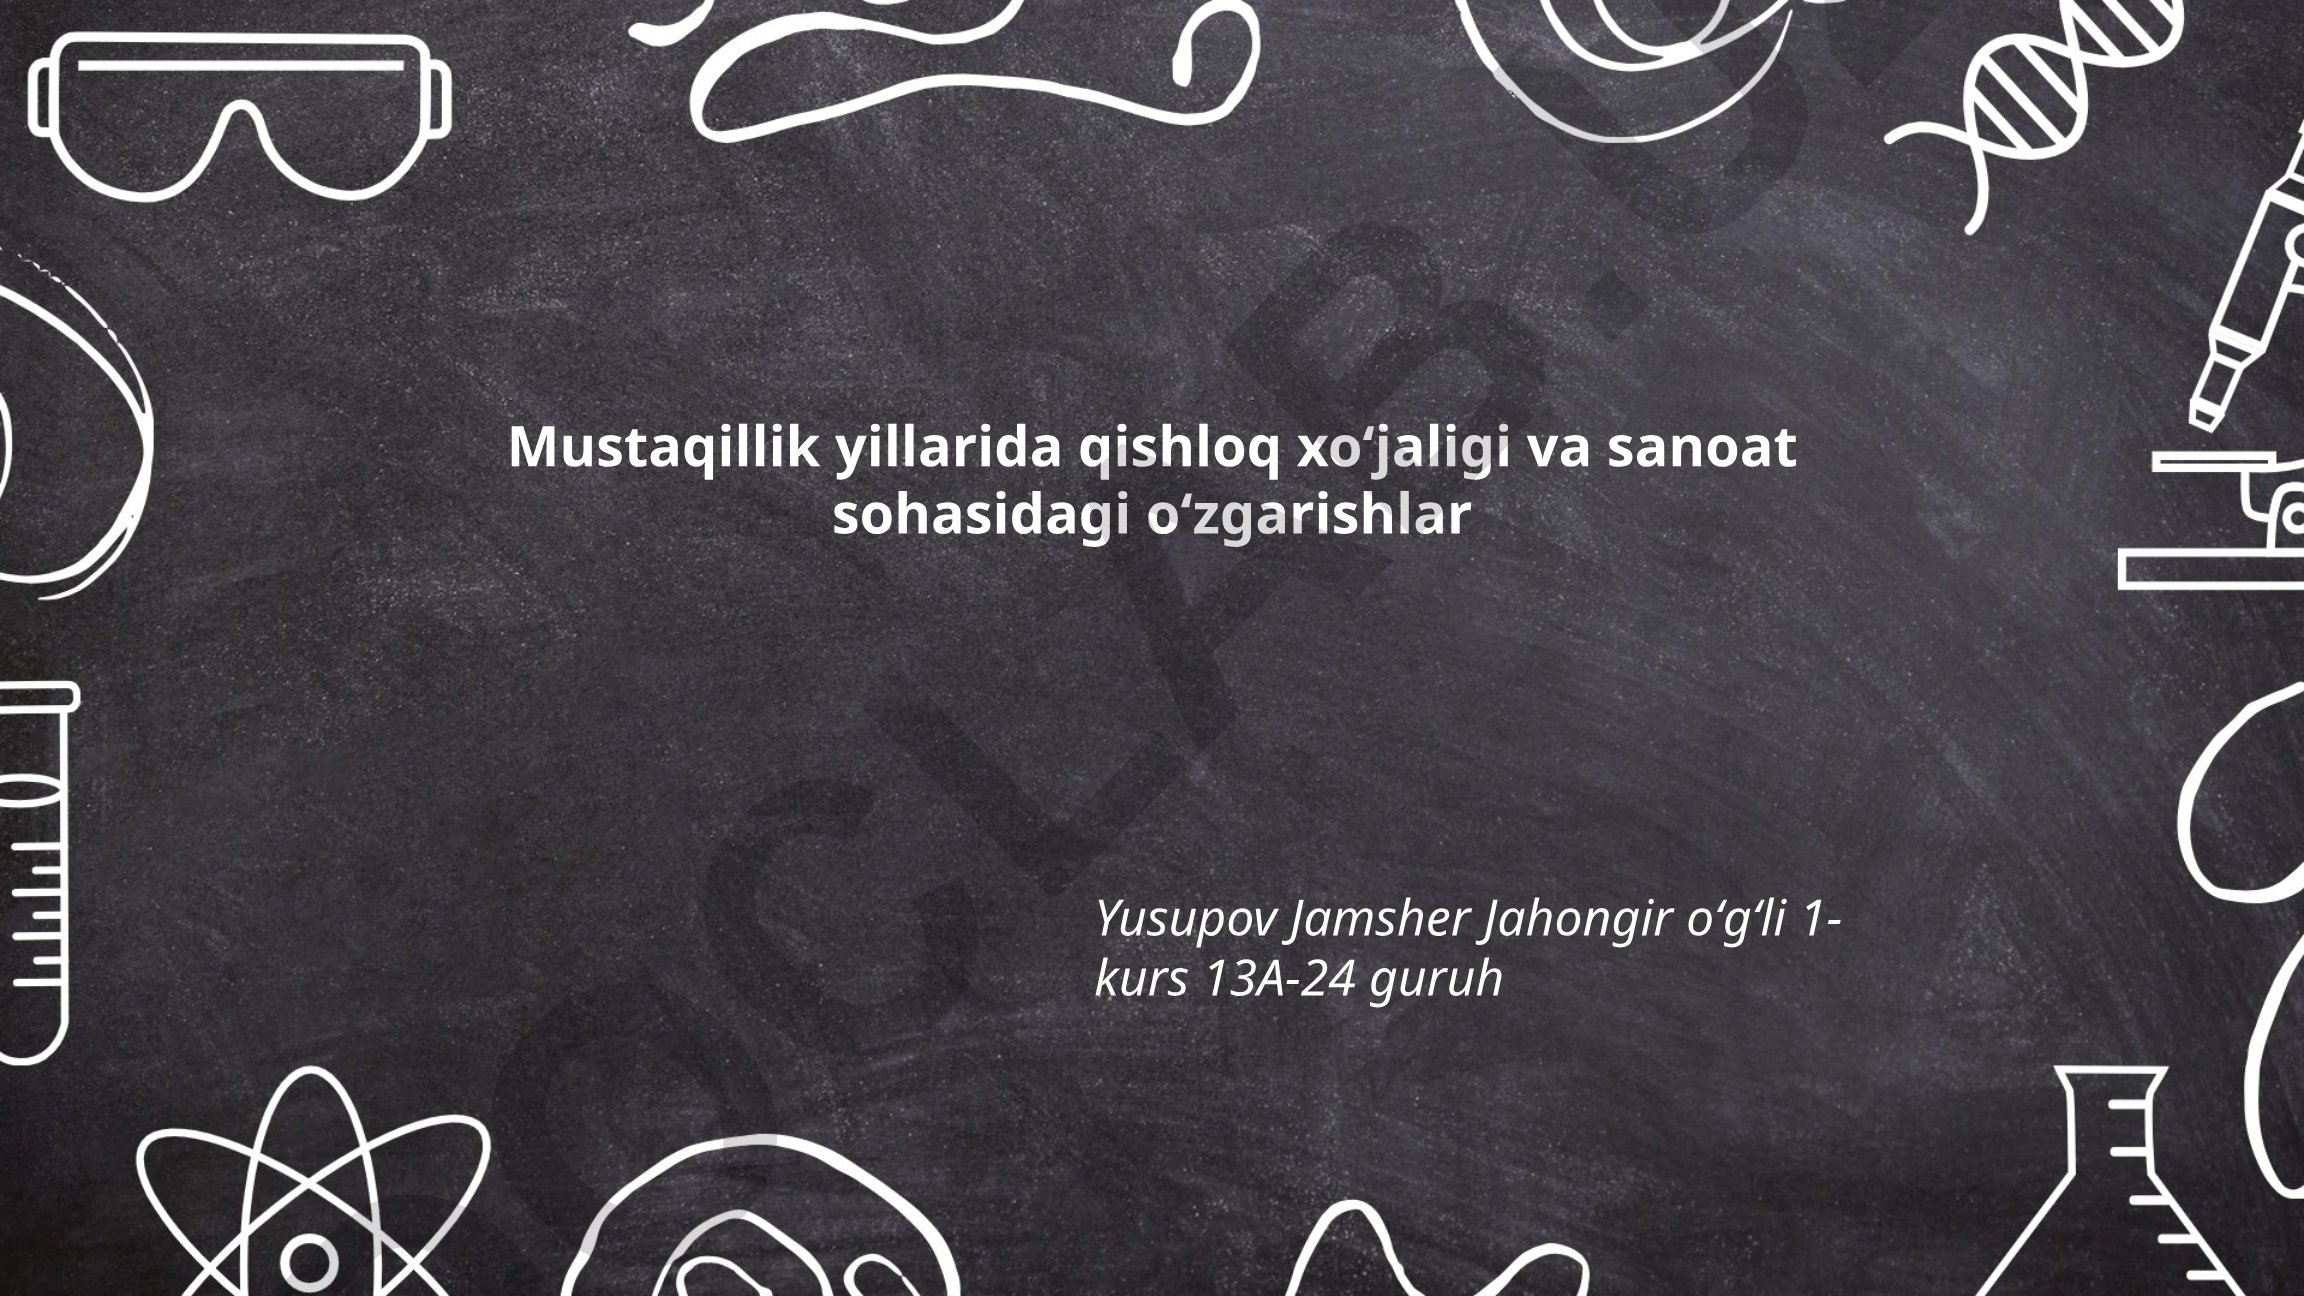 Mustaqillik yillarida qishloq xo‘jaligi va sanoat
sohasidagi o‘zgarishlar
Yusupov Jamsher Jahongir o‘g‘li 1-
kurs 13A-24 guruh